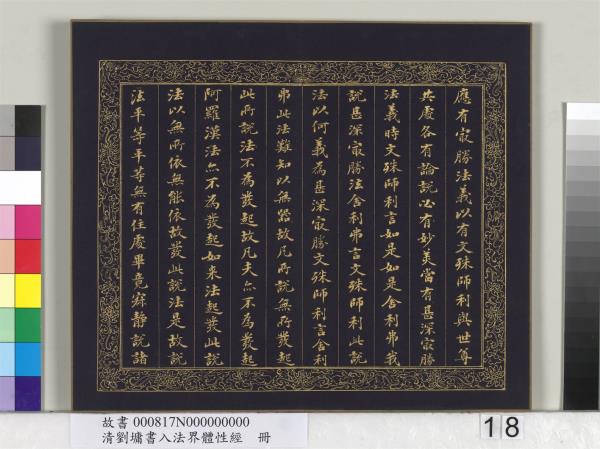 應有冣勝法義以有文殊師利與世尊
共處各有論說必有妙美當有甚深冣勝
法義時文殊師利言如是如是舍利弗我
說甚深冣勝法舍利弗言文殊師利此說
法以何義為甚深冣勝文殊師利言舍利
弗此法難知以無器故凡所說無所發起
此所說法不為發起故凡夫亦不為發起
阿羅漢法亦不為發起如来法起發此說
法以無所依無能依故發此說法是故說
法平等平等無有住處畢竟寂靜說諸
故書 000817N000000000
清劉墉書入法界體性經 冊
18